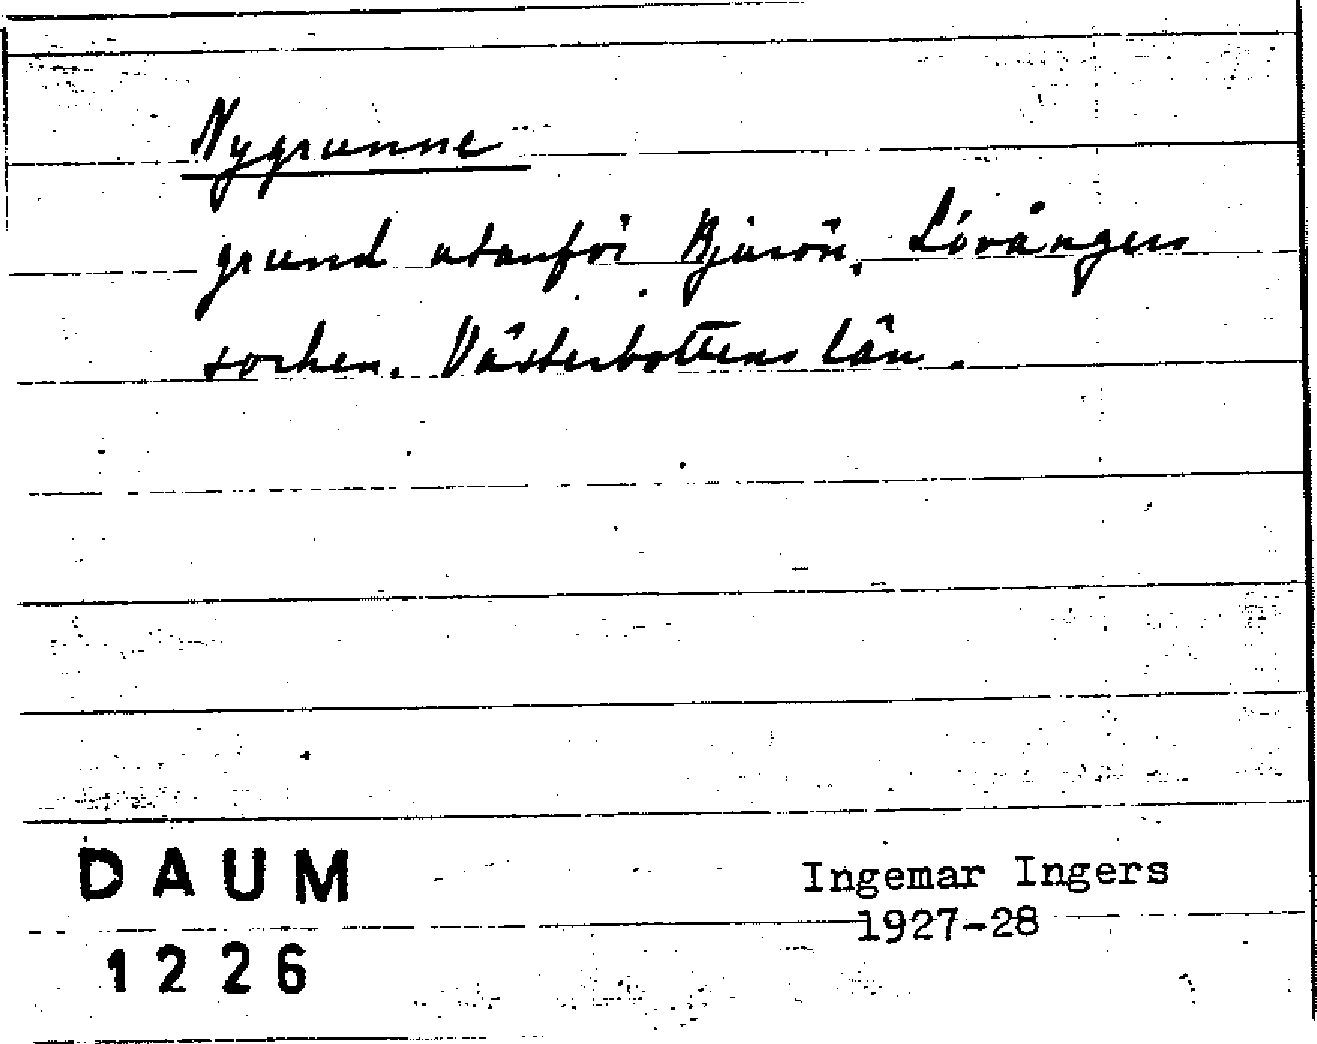 Nygrunne
grund utanför Bjurön, Lövångers
socken. Västerbottens län.
DAUM
1226
Ingemar Ingers
1927-28